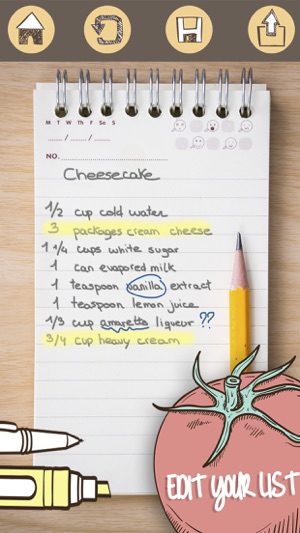 M T W Th F Se S
...... / ...... / ......
NO. ......
Cheesecake
1/2 cup cold water
3 packages cream cheese
1 1/4 cups white sugar
1 can evapored milk
1 teaspoon vanilla extract
1 teaspoon lemon juice
1/3 cup amaretto liqueur ??
3/4 cup heavy cream
EDIT YOUR LIST